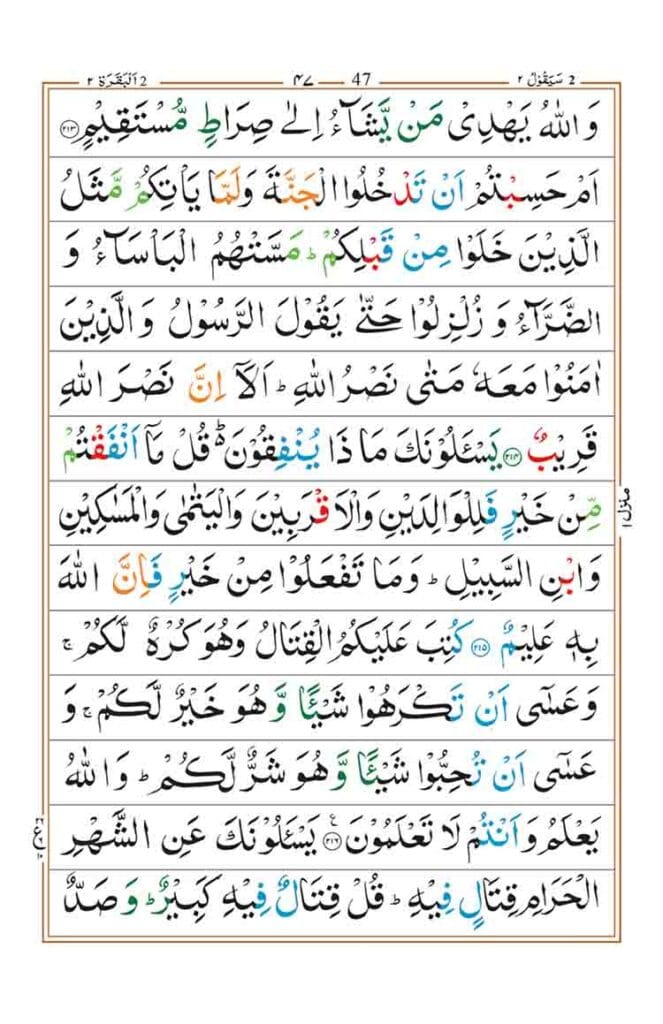 2 اَلْبَقَرَة ٢ ٤٧ 47 2 سَيَقُوْلُ ٢
وَاللّٰهُ يَهْدِىْ مَنْ يَّشَآءُ اِلٰى صِرَاطٍ مُّسْتَقِيْمٍ ﴿٢١٣﴾
اَمْ حَسِبْتُمْ اَنْ تَدْخُلُوا الْجَنَّةَ وَلَمَّا يَاْتِكُمْ مَّثَلُ
الَّذِيْنَ خَلَوْا مِنْ قَبْلِكُمْ ؕ مَسَّتْهُمُ الْبَاْسَآءُ وَ
الضَّرَّآءُ وَ زُلْزِلُوْا حَتّٰى يَقُوْلَ الرَّسُوْلُ وَالَّذِيْنَ
اٰمَنُوْا مَعَهٗ مَتٰى نَصْرُ اللّٰهِ ؕ اَلَاۤ اِنَّ نَصْرَ اللّٰهِ
قَرِيْبٌ ﴿٢١٤﴾ يَسْـَٔلُوْنَكَ مَا ذَا يُنْفِقُوْنَ ؕ قُلْ مَاۤ اَنْفَقْتُمْ
مِّنْ خَيْرٍ فَلِلْوَالِدَيْنِ وَالْاَقْرَبِيْنَ وَالْيَتٰمٰى وَالْمَسٰكِيْنِ
وَابْنِ السَّبِيْلِ ؕ وَمَا تَفْعَلُوْا مِنْ خَيْرٍ فَاِنَّ اللّٰهَ
بِهٖ عَلِيْمٌ ﴿٢١٥﴾ كُتِبَ عَلَيْكُمُ الْقِتَالُ وَهُوَ كُرْهٌ لَّكُمْ ۚ
وَعَسٰٓى اَنْ تَكْرَهُوْا شَيْـًٔا وَّ هُوَ خَيْرٌ لَّكُمْ ۚ وَ
عَسٰٓى اَنْ تُحِبُّوْا شَيْـًٔا وَّ هُوَ شَرٌّ لَّكُمْ ؕ وَاللّٰهُ
يَعْلَمُ وَاَنْتُمْ لَا تَعْلَمُوْنَ ﴿٢١٦﴾ ع يَسْـَٔلُوْنَكَ عَنِ الشَّهْرِ
الْحَرَامِ قِتَالٍ فِيْهِ ؕ قُلْ قِتَالٌ فِيْهِ كَبِيْرٌ ؕ وَصَدٌّ
منزل ١